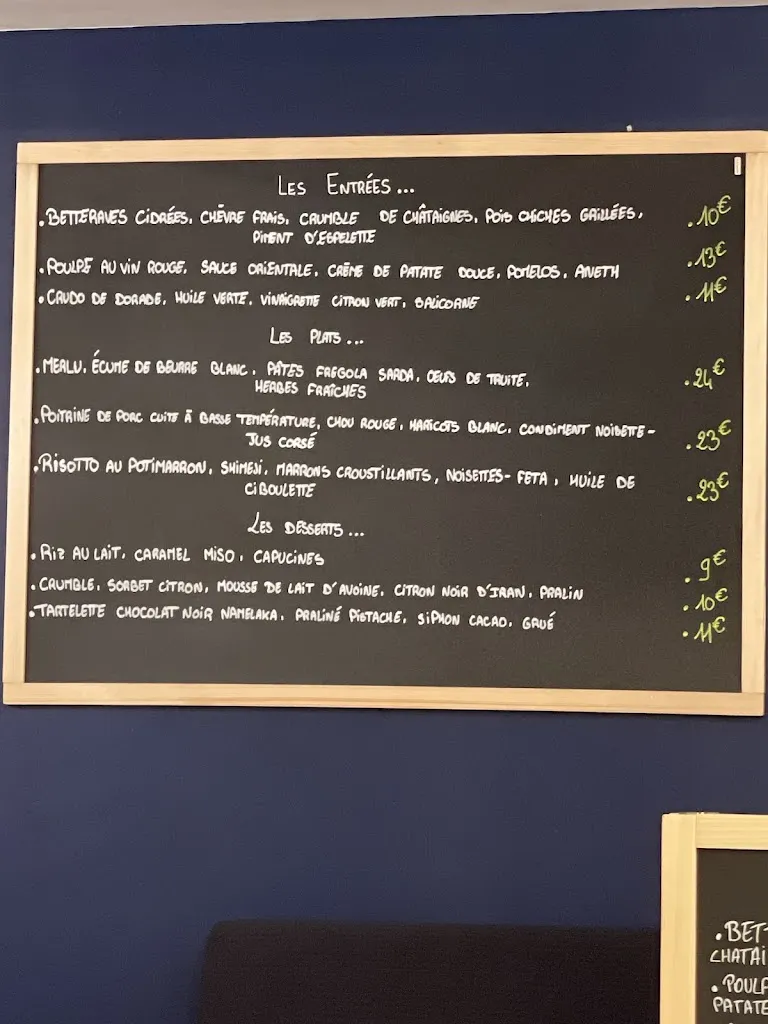 LES ENTRÉES...
.BETTERAVES CIDRÉES, CHÈVRE FRAIS, CRUMBLE DE CHÂTAIGNES, POIS CHICHES GRILLÉES, .10€
PIMENT D'ESPELETTE
.POULPE AU VIN ROUGE, SAUCE ORIENTALE, CRÈME DE PATATE DOUCE, POMELOS, ANETH .13€
.CRUDO DE DORADE, HUILE VERTE, VINAIGRETTE CITRON VERT, SALICORNE .11€
LES PLATS...
.MERLU, ÉCUME DE BEURRE BLANC, PÂTES FREGOLA SARDA, OEUFS DE TRUITE, .24€
HERBES FRAÎCHES
.POITRINE DE PORC CUITE À BASSE TEMPÉRATURE, CHOU ROUGE, HARICOTS BLANC, CONDIMENT NOISETTE- .23€
JUS CORSÉ
.RISOTTO AU POTIMARRON, SHIMEJI, MARRONS CROUSTILLANTS, NOISETTES- FETA, HUILE DE .23€
CIBOULETTE
LES DESSERTS...
.RIZ AU LAIT, CARAMEL MISO, CAPUCINES .9€
.CRUMBLE, SORBET CITRON, MOUSSE DE LAIT D'AVOINE, CITRON NOIR D'IRAN, PRALIN .10€
.TARTELETTE CHOCOLAT NOIR NAMELAKA, PRALINÉ PISTACHE, SIPHON CACAO, GRUÉ .11€
.BET
CHATAI
.POULP
PATATE